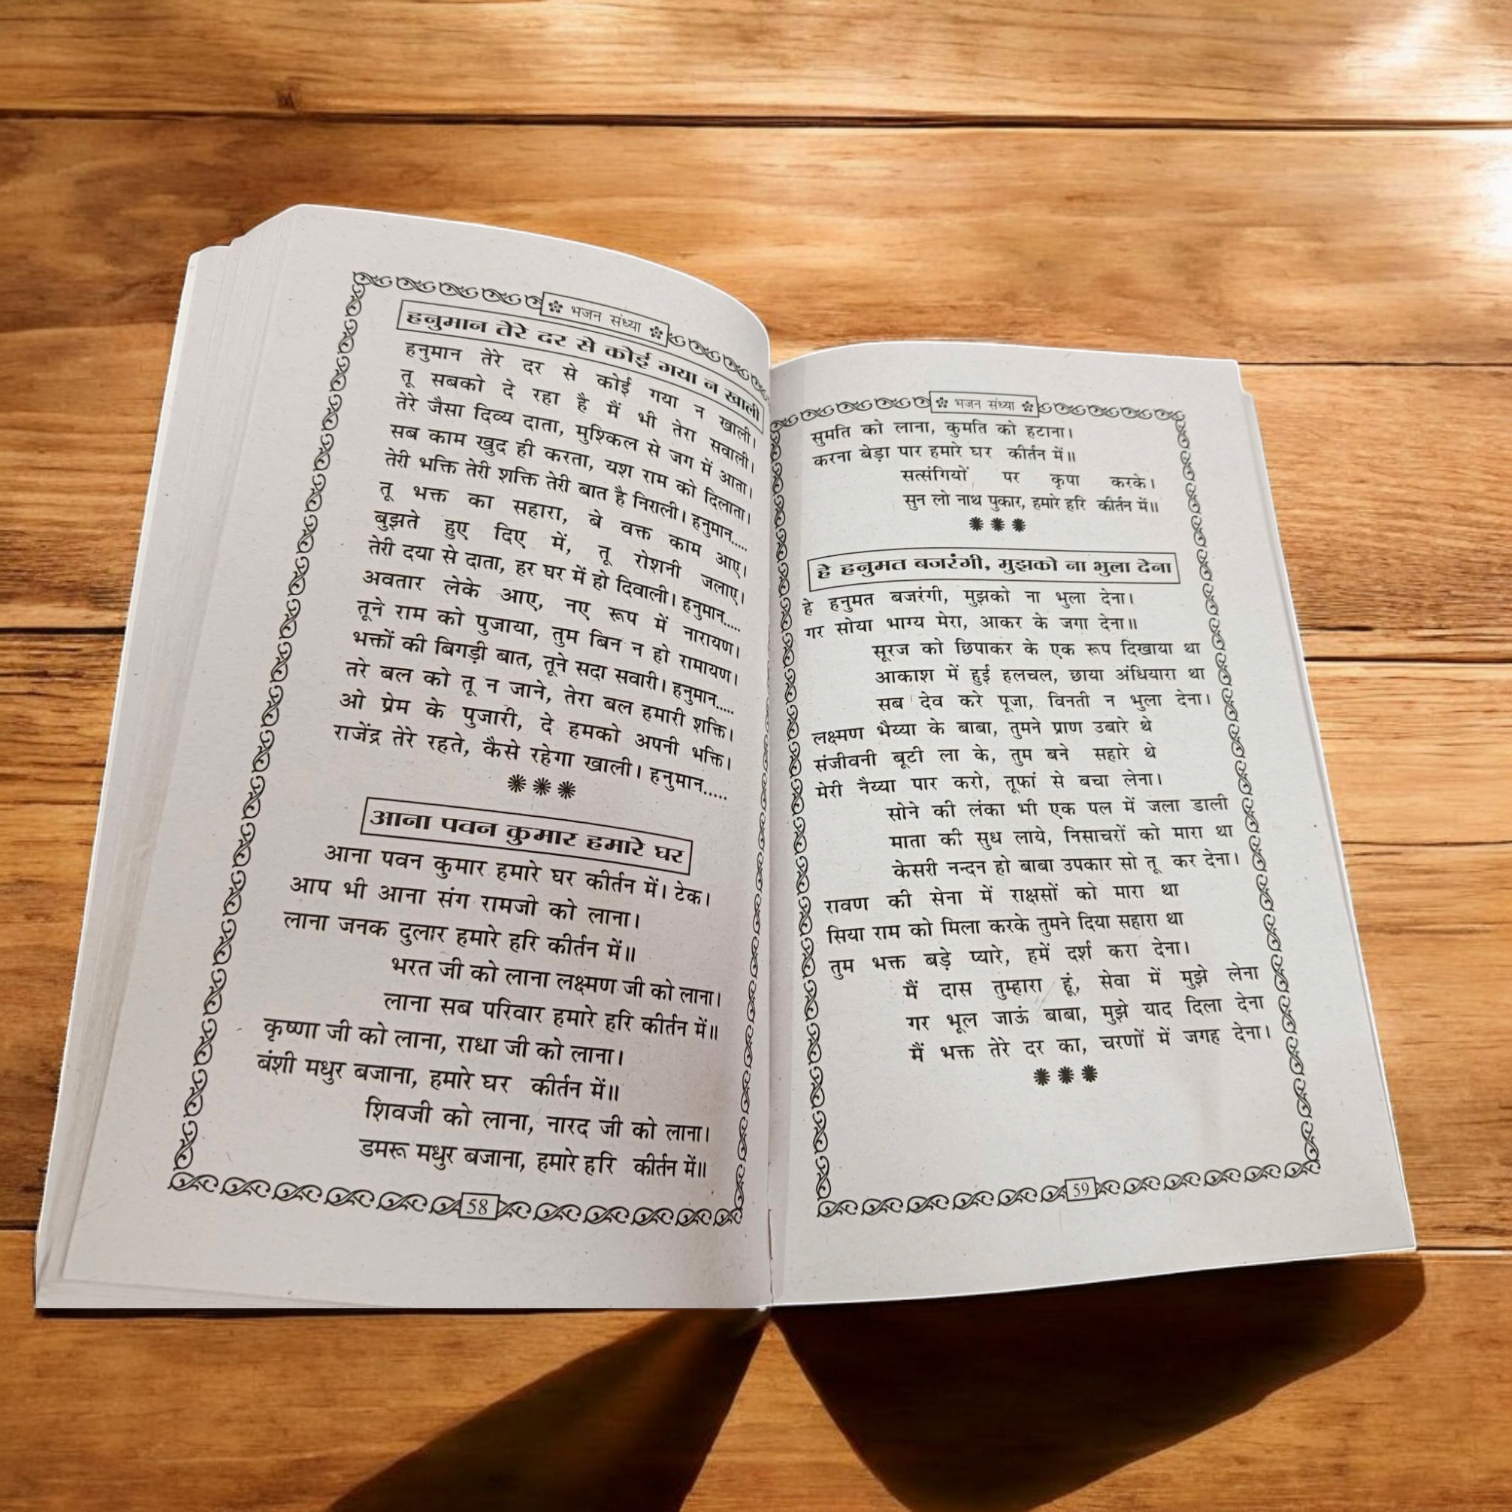 भजन संध्या
हनुमान तेरे दर से कोई गया न खाली
हनुमान तेरे दर से कोई गया न खाली।
तू सबको दे रहा है मैं भी तेरा सवाली।
तेरे जैसा दिव्य दाता, मुश्किल से जग में आता।
सब काम खुद ही करता, यश राम को दिलाता।
तेरी भक्ति तेरी शक्ति तेरी बात है निराली। हनुमान.....
तू भक्त का सहारा, बे वक्त काम आए।
बुझते हुए दिए में, तू रोशनी जलाए।
तेरी दया से दाता, हर घर में हो दिवाली। हनुमान.....
अवतार लेके आए, नए रूप में नारायण।
तूने राम को पुजाया, तुम बिन न हो रामायण।
भक्तों की बिगड़ी बात, तूने सदा सवारी। हनुमान.....
तरे बल को तू न जाने, तेरा बल हमारी शक्ति।
ओ प्रेम के पुजारी, दे हमको अपनी भक्ति।
राजेंद्र तेरे रहते, कैसे रहेगा खाली। हनुमान.....
आना पवन कुमार हमारे घर
आना पवन कुमार हमारे घर कीर्तन में। टेक।
आप भी आना संग रामजो को लाना।
लाना जनक दुलार हमारे हरि कीर्तन में॥
भरत जी को लाना लक्ष्मण जी को लाना।
लाना सब परिवार हमारे हरि कीर्तन में॥
कृष्णा जी को लाना, राधा जी को लाना।
बंशी मधुर बजाना, हमारे घर कीर्तन में॥
शिवजी को लाना, नारद जी को लाना।
डमरू मधुर बजाना, हमारे हरि कीर्तन में॥
58
भजन संध्या
सुमति को लाना, कुमति को हटाना।
करना बेड़ा पार हमारे घर कीर्तन में॥
सत्संगियों पर कृपा करके।
सुन लो नाथ पुकार, हमारे हरि कीर्तन में॥
हे हनुमत बजरंगी, मुझको ना भुला देना
हे हनुमत बजरंगी, मुझको ना भुला देना।
गर सोया भाग्य मेरा, आकर के जगा देना॥
सूरज को छिपाकर के एक रूप दिखाया था
आकाश में हुई हलचल, छाया अंधियारा था
सब देव करे पूजा, विनती न भुला देना।
लक्ष्मण भैय्या के बाबा, तुमने प्राण उबारे थे
संजीवनी बूटी ला के, तुम बने सहारे थे
मेरी नैय्या पार करो, तूफां से बचा लेना।
सोने की लंका भी एक पल में जला डाली
माता की सुध लाये, निसाचरों को मारा था
केसरी नन्दन हो बाबा उपकार सो तू कर देना।
रावण की सेना में राक्षसों को मारा था
सिया राम को मिला करके तुमने दिया सहारा था
तुम भक्त बड़े प्यारे, हमें दर्श करा देना।
मैं दास तुम्हारा हूं, सेवा में मुझे लेना
गर भूल जाऊं बाबा, मुझे याद दिला देना
मैं भक्त तेरे दर का, चरणों में जगह देना।
59